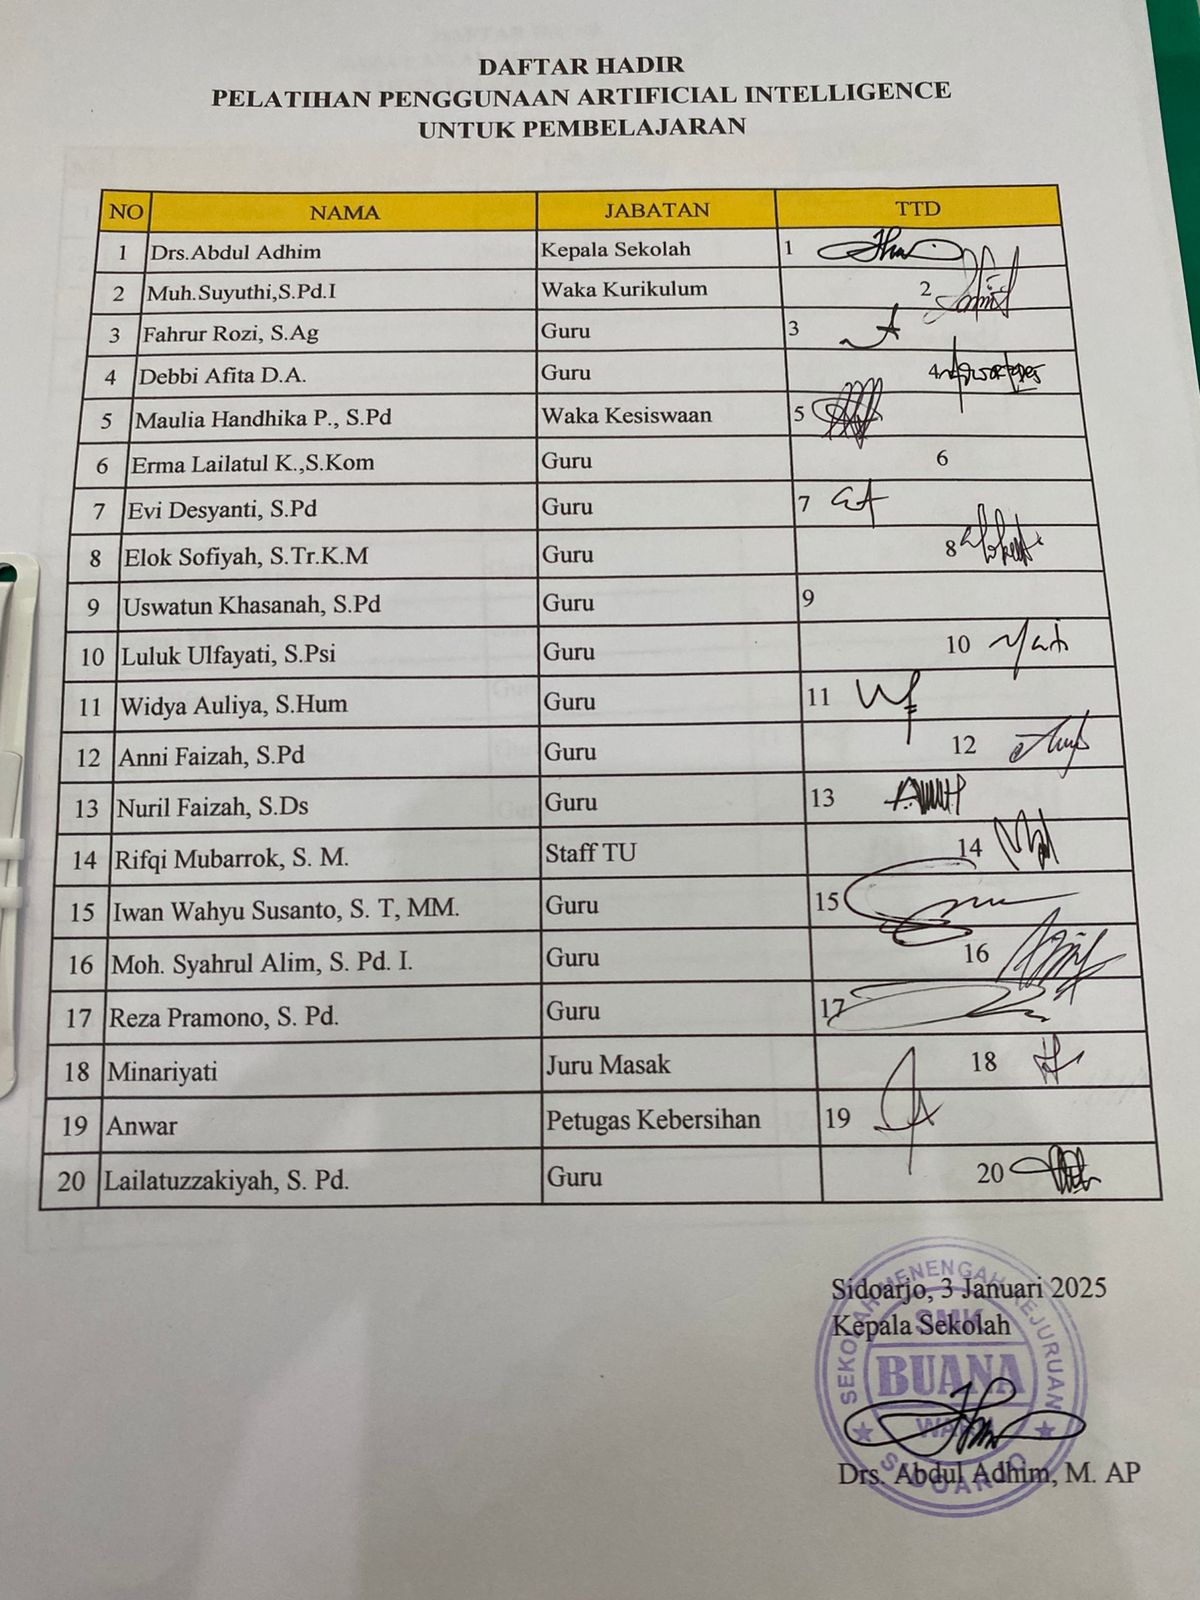 DAFTAR HADIR
PELATIHAN PENGGUNAAN ARTIFICIAL INTELLIGENCE
UNTUK PEMBELAJARAN
NO NAMA JABATAN TTD
1 Drs.Abdul Adhim Kepala Sekolah 1
2 Muh.Suyuthi,S.Pd.I Waka Kurikulum 2
3 Fahrur Rozi, S.Ag Guru 3
4 Debbi Afita D.A. Guru 4
5 Maulia Handhika P., S.Pd Waka Kesiswaan 5
6 Erma Lailatul K.,S.Kom Guru 6
7 Evi Desyanti, S.Pd Guru 7
8 Elok Sofiyah, S.Tr.K.M Guru 8
9 Uswatun Khasanah, S.Pd Guru 9
10 Luluk Ulfayati, S.Psi Guru 10
11 Widya Auliya, S.Hum Guru 11
12 Anni Faizah, S.Pd Guru 12
13 Nuril Faizah, S.Ds Guru 13
14 Rifqi Mubarrok, S. M. Staff TU 14
15 Iwan Wahyu Susanto, S. T, MM. Guru 15
16 Moh. Syahrul Alim, S. Pd. I. Guru 16
17 Reza Pramono, S. Pd. Guru 17
18 Minariyati Juru Masak 18
19 Anwar Petugas Kebersihan 19
20 Lailatuzzakiyah, S. Pd. Guru 20
Sidoarjo, 3 Januari 2025
Kepala Sekolah
SEKOLAH MENENGAH KEJURUAN
SMK
BUANA
SIDOARJO
Drs. Abdul Adhim, M. AP